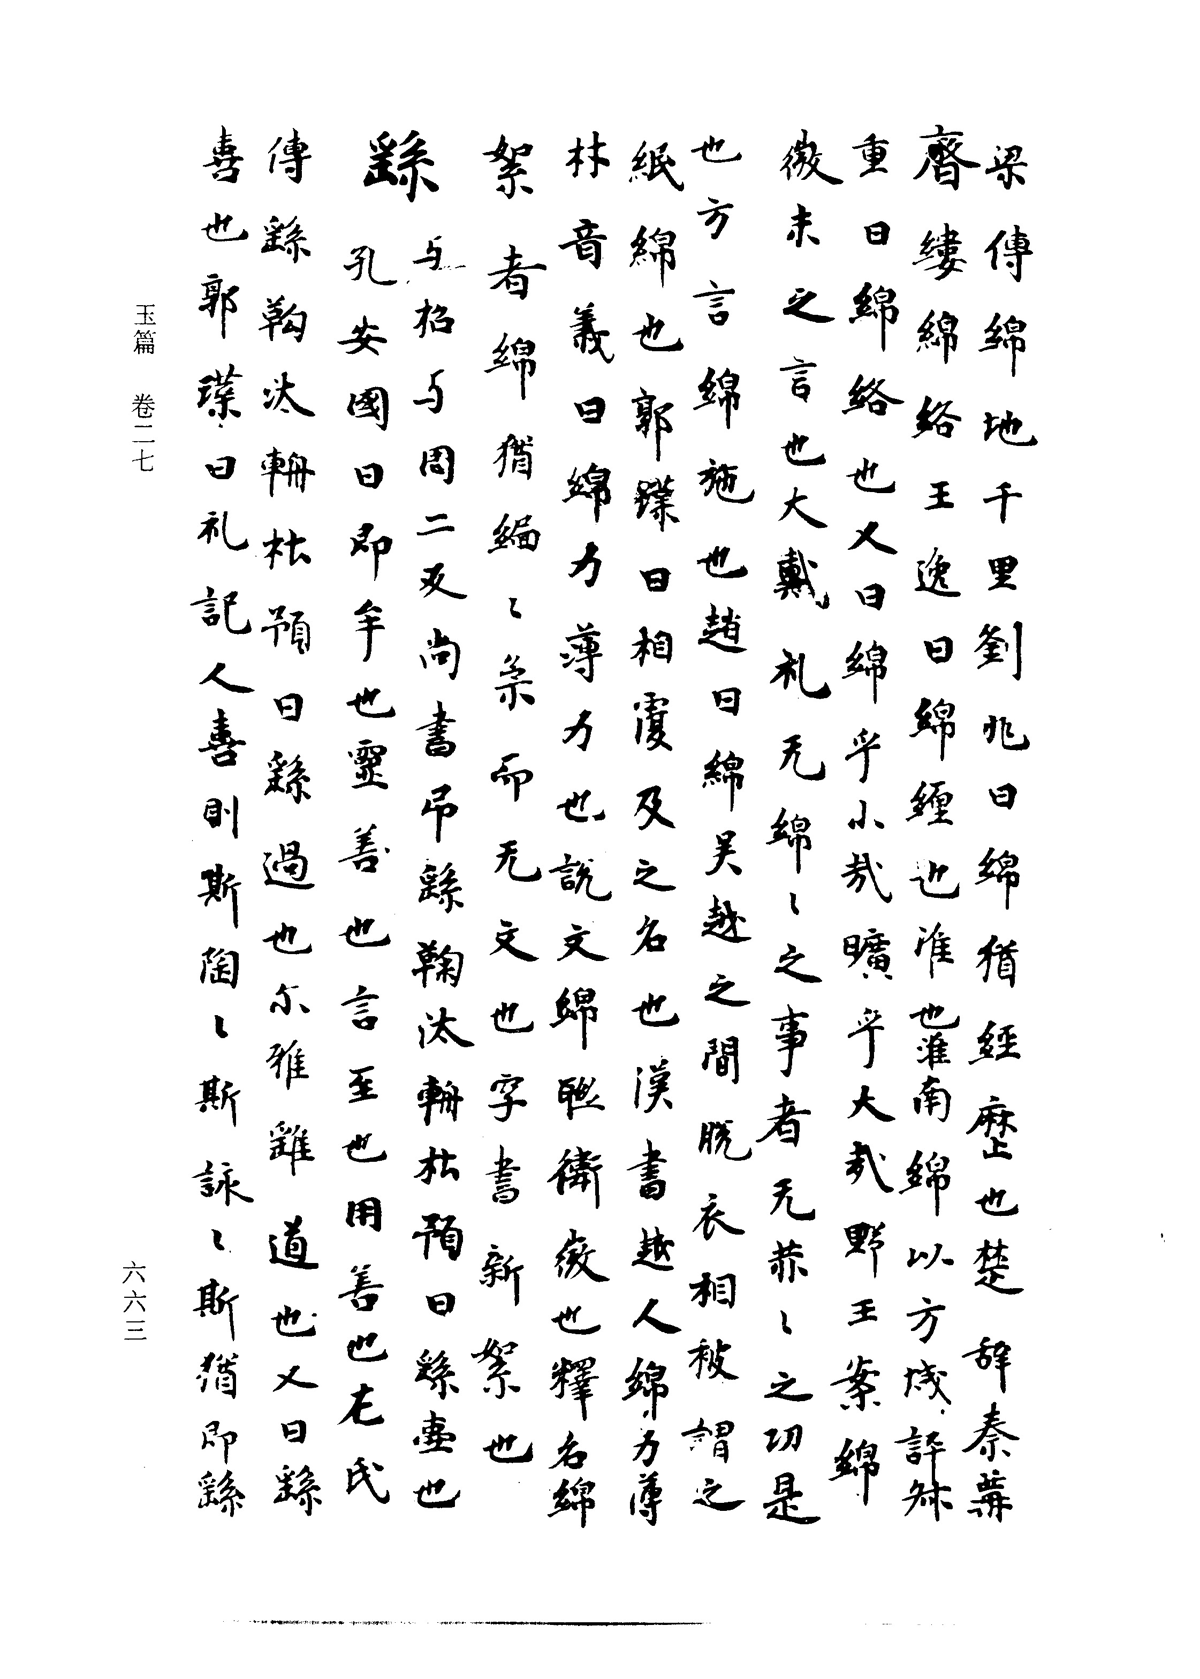 梁傳綿地千里劉兆曰綿猶經歴也楚辞秦篝
齊縷綿絡王逸曰綿纏也淮也淮南綿以方城許叔
重曰綿絡也又曰綿乎小哉曠乎大哉野王案綿
微末之言也大戴礼无綿〻之事者无恭〻之功是
也方言綿施也趙曰綿吴越之間脱衣相被謂之
緍綿也郭璞曰相覆及之名也漢書越人綿力薄
林音義曰綿力薄力也説文綿聮微也釋名綿
絮者綿猶緬〻柔而无文也字書新絮也
繇 与招与周二反尚書吊繇鞠汰輈杜預曰繇壷也
孔安國曰即牟也靈善也言至也用善也左氏
傳繇鞫汰輈杜預曰繇過也尓雅雖道也又曰繇
喜也郭璞曰礼記人喜則斯陶〻斯詠〻斯猶即繇
玉篇 卷二七
六六三